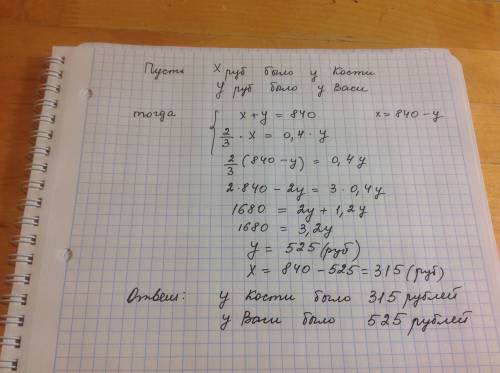 Пусть x руб было у Кости
y руб было у Васи
тогда
{ x + y = 840   x = 840 - y
2/3 · x = 0,4 · y
2/3 (840 - y) = 0,4y
2·840 - 2y = 3·0,4y
1680 = 2y + 1,2y
1680 = 3,2y
y = 525 (руб)
x = 840 - 525 = 315 (руб)
Ответ: у Кости было 315 рублей
у Васи было 525 рублей